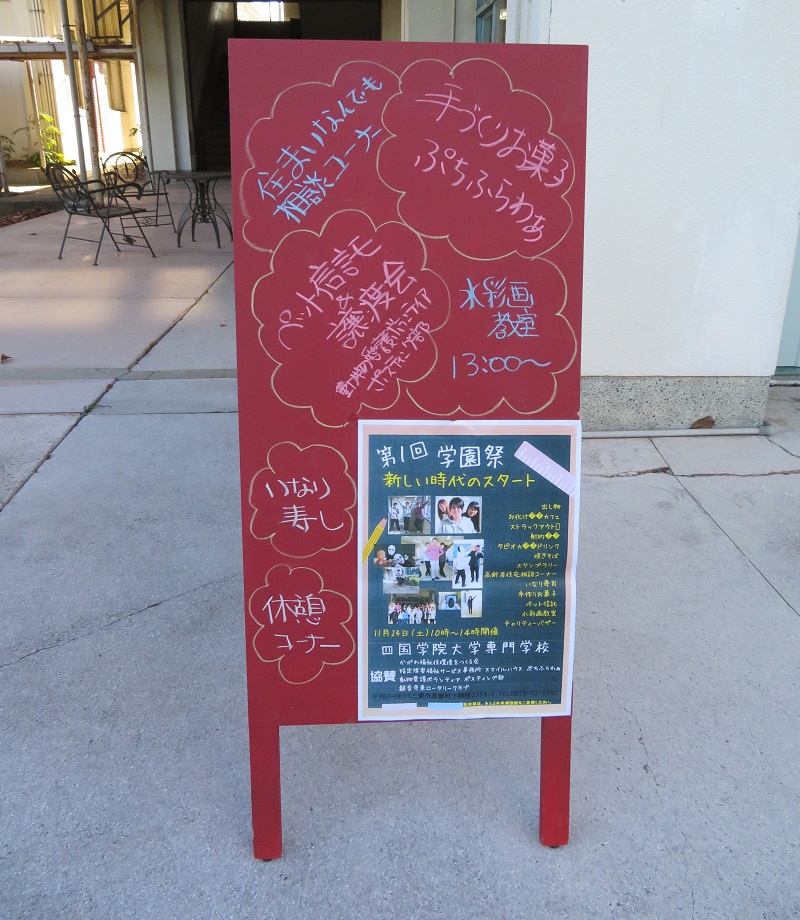 住まいなんでも
相談コーナー
手づくりお菓子
ぷちふらわぁ
ペット信託
&
譲度会
動物愛護ボランティア
ポスティング部
水彩画
教室
13:00〜
いなり
寿し
休憩
コーナー
第1回 学園祭
新しい時代のスタート
出し物
お化け��カフェ
ストラックアウト
射的��
タピオカ��ドリンク
焼きそば
スタンプラリー
高齢者住宅相談コーナー
いなり寿司
手作りお菓子
ペット信託
水彩画教室
チャリティーバザー
11月24日(土)10時〜14時開催
四国学院大学専門学校
協賛
かがわ福祉住環境をつくる会
指定障害福祉サービス事務所 スマイルハウス ぷちふらわぁ
動物愛護ボランティア ポスティング部
観音寺東ロータリークラブ